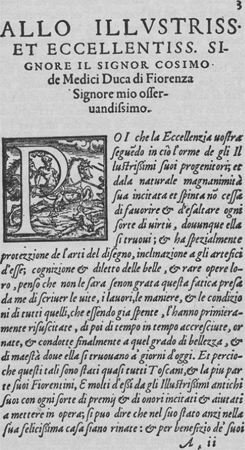 3
ALLO ILLVSTRISS.
ET ECCELLENTISS. SI-
GNORE IL SIGNOR COSIMO
de Medici Duca di Fiorenza
Signore mio osser-
uandissimo.
POI che la Eccellenzia uostra
seguẽdo in ciò l'orme de gli Il
lustrissimi suoi progenitori; et
dala naturale magnanimità
sua incitata et spinta nõ cessa
di fauorire & d'esaltare ogni
sorte di uirtù, douunque ella
si truoui; & ha spezialmente
protezzione de l'arti del disegno, inclinazione a gli artefici
d'esse; cognizione & diletto delle belle, & rare opere lo-
ro, penso che non le sarà se non grata questa fatica presa
da me di scriuer le uite, i lauori, le maniere, & le condizio
ni di tutti quelli, che essendo già spente, l'hanno primiera-
mente risuscitate, di poi di tempo in tempo accresciute, or
nate, & condotte finalmente a quel grado di bellezza, &
di maestà doue elle si truouano a giorni d'oggi. Et percio-
che questi tali sono stati quasi tutti Toscani, & la piu par
te suoi Fiorentini, E molti d'essi da gli Illustrissimi antichi
suoi con ogni sorte di premij & di onori incitati & aiutati
a mettere in opera; si puo dire che nel suo stato anzi nella
sua felicissima casa siano rinate: & per benefizio de' suoi
A ii